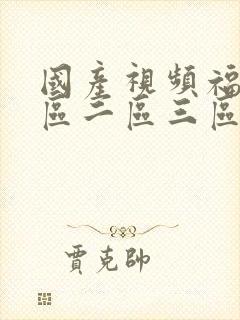 國產視頻福
區二區三區
賈克帥